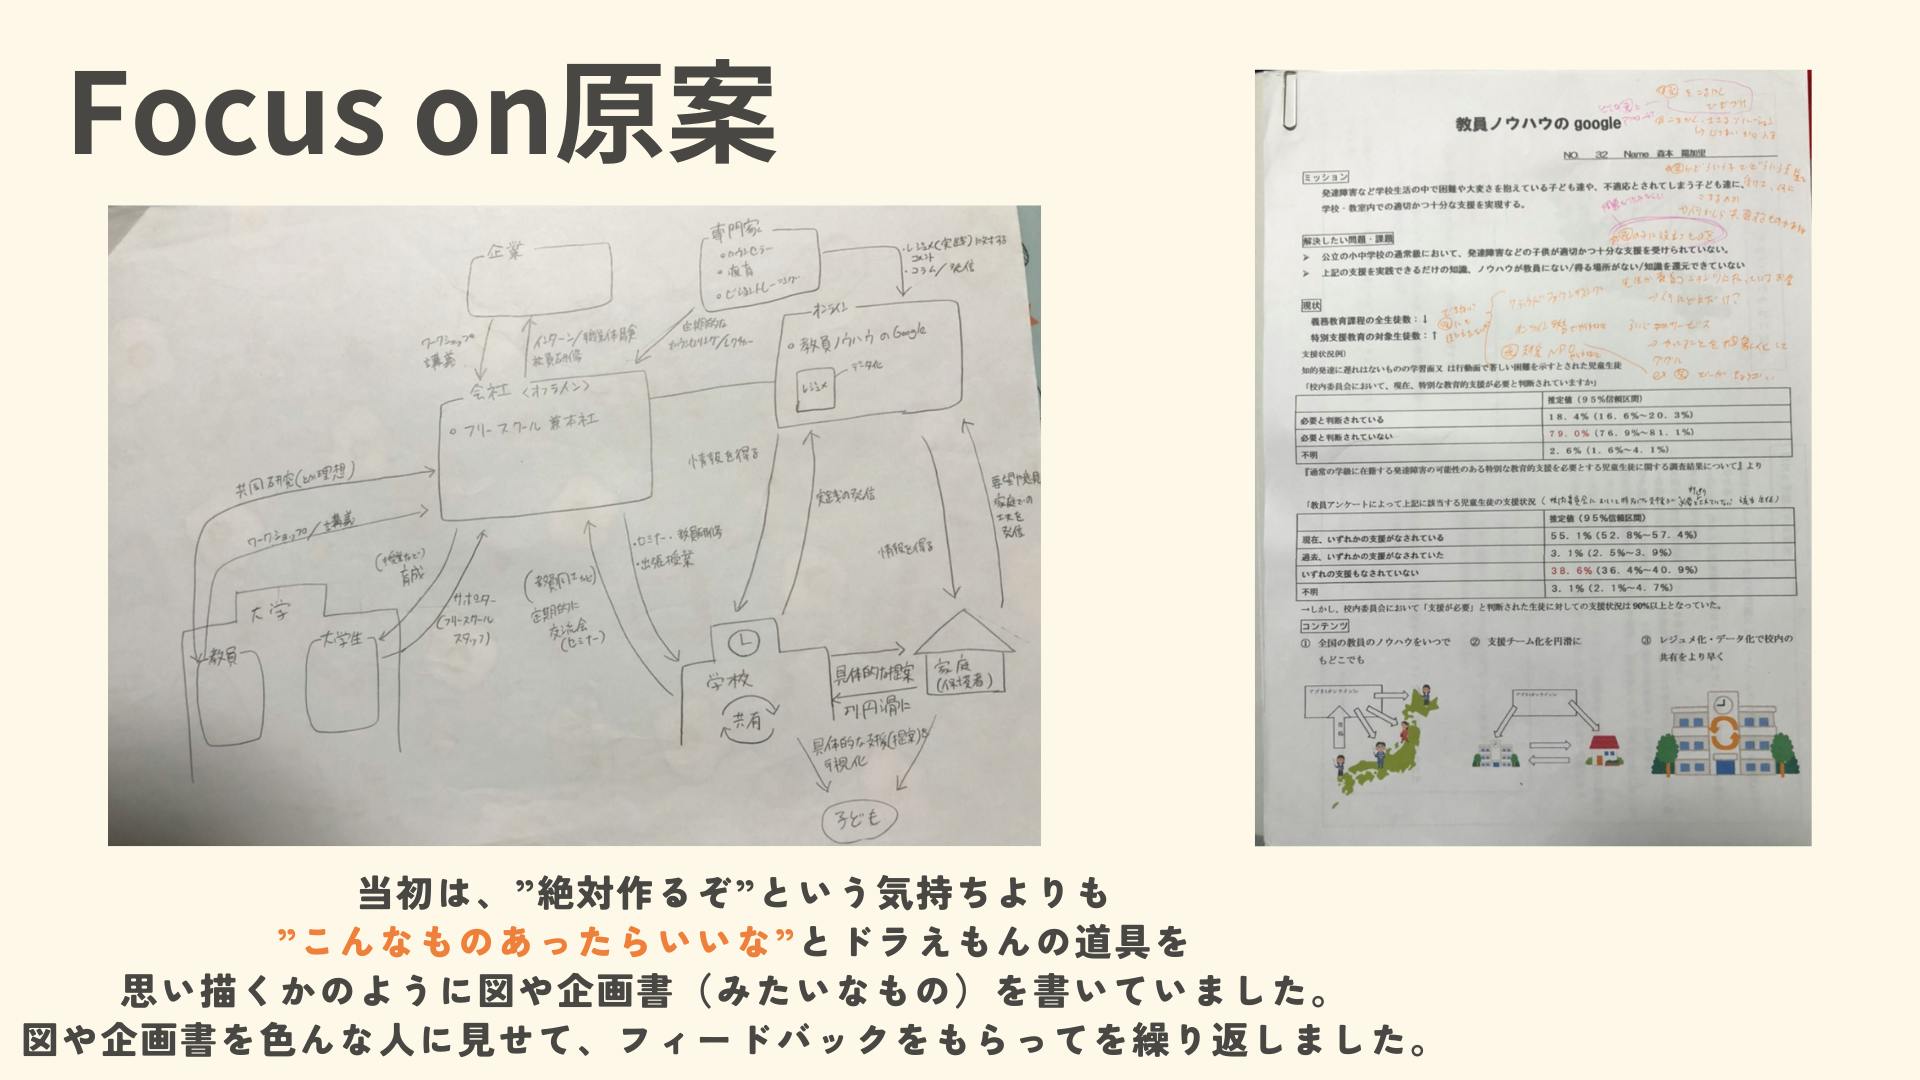 Focus on原案
企業
専門家
・カウンセラー
・療育
・ビジョントレーニング
・レジュメ(実践)に対する
コメント
・コラム/発信
ワークショップ
講義
インターン/職業体験
教員研修
定期的な
カウンセリング/レクチャー
オンライン
○教員ノウハウのGoogle
レジュメ
データ化
会社〈オフライン〉
○フリースクール兼本社
共同研究(とか理想)
ワークショップ/講義
情報を得る
実践の発信
情報を得る
家庭での
工夫を
発信
大学
教員
大学生
育成
サポーター
(フリースクール
スタッフ)
定期的に
交流会
(セミナー)
・セミナー・教員研修
・出張授業
学校
共有
具体的な提案
より円滑に
家庭
(保護者)
具体的な支援(提案)を
可視化
子ども
教員ノウハウの google
NO. 32 Name 森本 陽加里
ミッション
発達障害など学校生活の中で困難や大変さを抱えている子ども達や、不適応とされてしまう子ども達に、
学校・教室内での適切かつ十分な支援を実現する。
解決したい問題・課題
➢ 公立の小中学校の通常級において、発達障害などの子供が適切かつ十分な支援を受けられていない。
➢ 上記の支援を実践できるだけの知識、ノウハウが教員にない/得る場所がない/知識を還元できていない
現状
義務教育課程の全生徒数：↓
特別支援教育の対象生徒数：↑
支援状況例)
知的発達に遅れはないものの学習面又 は行動面で著しい困難を示すとされた児童生徒
「校内委員会において、現在、特別な教育的支援が必要と判断されていますか」
推定値（95%信頼区間）
必要と判断されている 18．4%（16．6%～20．3%）
必要と判断されていない 79．0%（76．9%～81．1%）
不明 2．6%（1．6%～4．1%）
『通常の学級に在籍する発達障害の可能性のある特別な教育的支援を必要とする児童生徒に関する調査結果について』より
「教員アンケートによって上記に該当する児童生徒の支援状況
推定値（95%信頼区間）
現在、いずれかの支援がなされている 55．1%（52．8%～57．4%）
過去、いずれかの支援がなされていた 3．1%（2．5%～3．9%）
いずれの支援もなされていない 38．6%（36．4%～40．9%）
不明 3．1%（2．1%～4．7%）
→しかし、校内委員会において「支援が必要」と判断された生徒に対しての支援状況は90%以上となっていた。
コンテンツ
① 全国の教員のノウハウをいつで
もどこでも
② 支援チーム化を円滑に
③ レジュメ化・データ化で校内の
共有をより早く
当初は、”絶対作るぞ”という気持ちよりも
”こんなものあったらいいな”とドラえもんの道具を
思い描くかのように図や企画書（みたいなもの）を書いていました。
図や企画書を色んな人に見せて、フィードバックをもらってを繰り返しました。